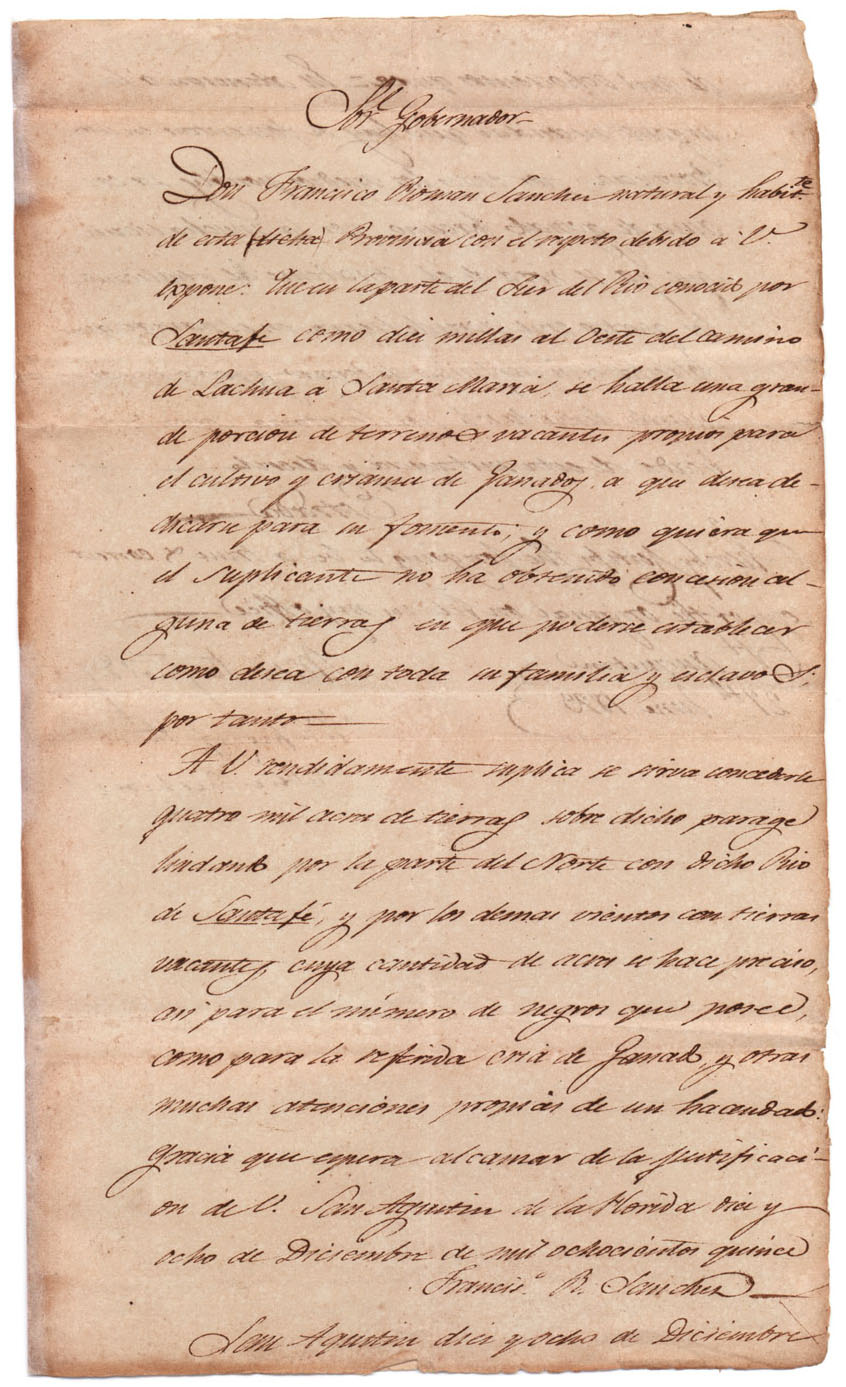 Sõr. Gobernador
Don Francisco Roman Sanchez natural y habit.te
de esta (dicha) Provincia con el respeto debido à V.
expone: Que en la parte del Sur del Rio conocido por
Santafé como diez millas al Oeste del camino
de Lachua à Santa Maria, se halla una gran-
de porcion de terrenos vacantes propios para
el cultivo y crianza de Ganados, a que desea de-
dicarse para su fomento; y como quiera que
el Suplicante no ha obtenido concesion al-
guna de tierras en que poderse establecer
como desea con toda su familia y esclavos;
por tanto
A V. rendidamente suplica se sirva concederle
quatro mil acres de tierras sobre dicho parage
lindando por la parte del Norte con dicho Rio
de Santafé, y por los demas vientos con tierras
vacantes, cuya cantidad de acres se hace preciso,
asi para el número de negros que posee,
como para la referida cria de Ganado, y otras
muchas atenciones propias de un hacendado:
Gracia que espera alcanzar de la justificaci-
on de V. San Agustin de la Florida diez y
ocho de Diciembre de mil ochocientos quince
Francis.o R. Sanchez
San Agustin diez y ocho de Diciembre